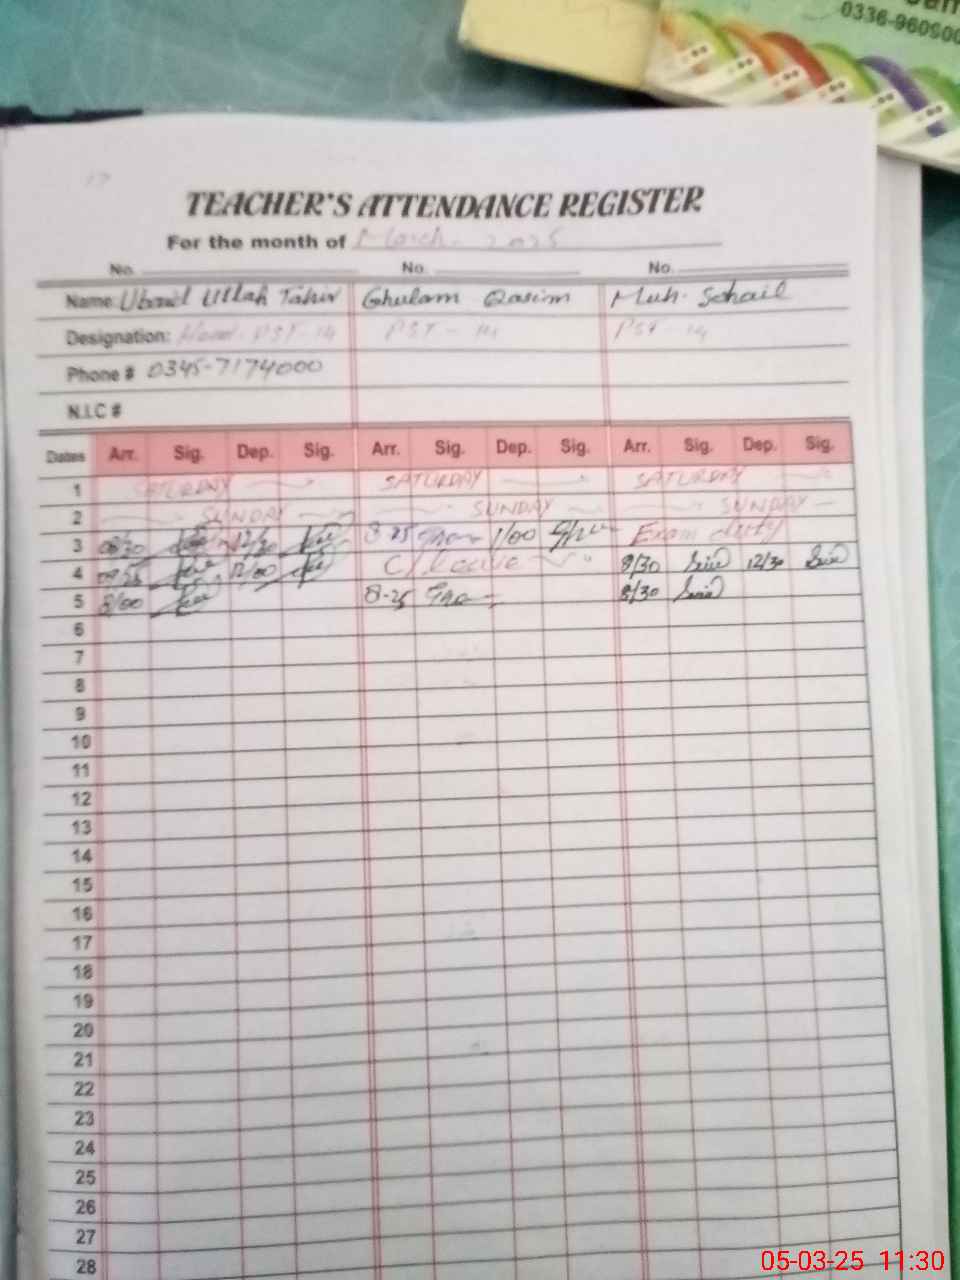 0336-960900
TEACHER'S ATTENDANCE REGISTER
For the month of March. 2025
No. No. No.
Name: Ubaid Ullah Tahir Ghulam Qasim Muh. Sohail
Designation: Head. PST-14 PST-14 PST-14
Phone # 0345-7174000
N.I.C #
Dates Arr. Sig. Dep. Sig. Arr. Sig. Dep. Sig. Arr. Sig. Dep. Sig.
1 SATURDAY SATURDAY SATURDAY
2 SUNDAY SUNDAY SUNDAY
3 08/30 12/30 8-25 1/00 Exam duty
4 12/00 C/Leave 8/30 12/30
5 8/00 8-25 8/30
6
7
8
9
10
11
12
13
14
15
16
17
18
19
20
21
22
23
24
25
26
27
28
05-03-25 11:30